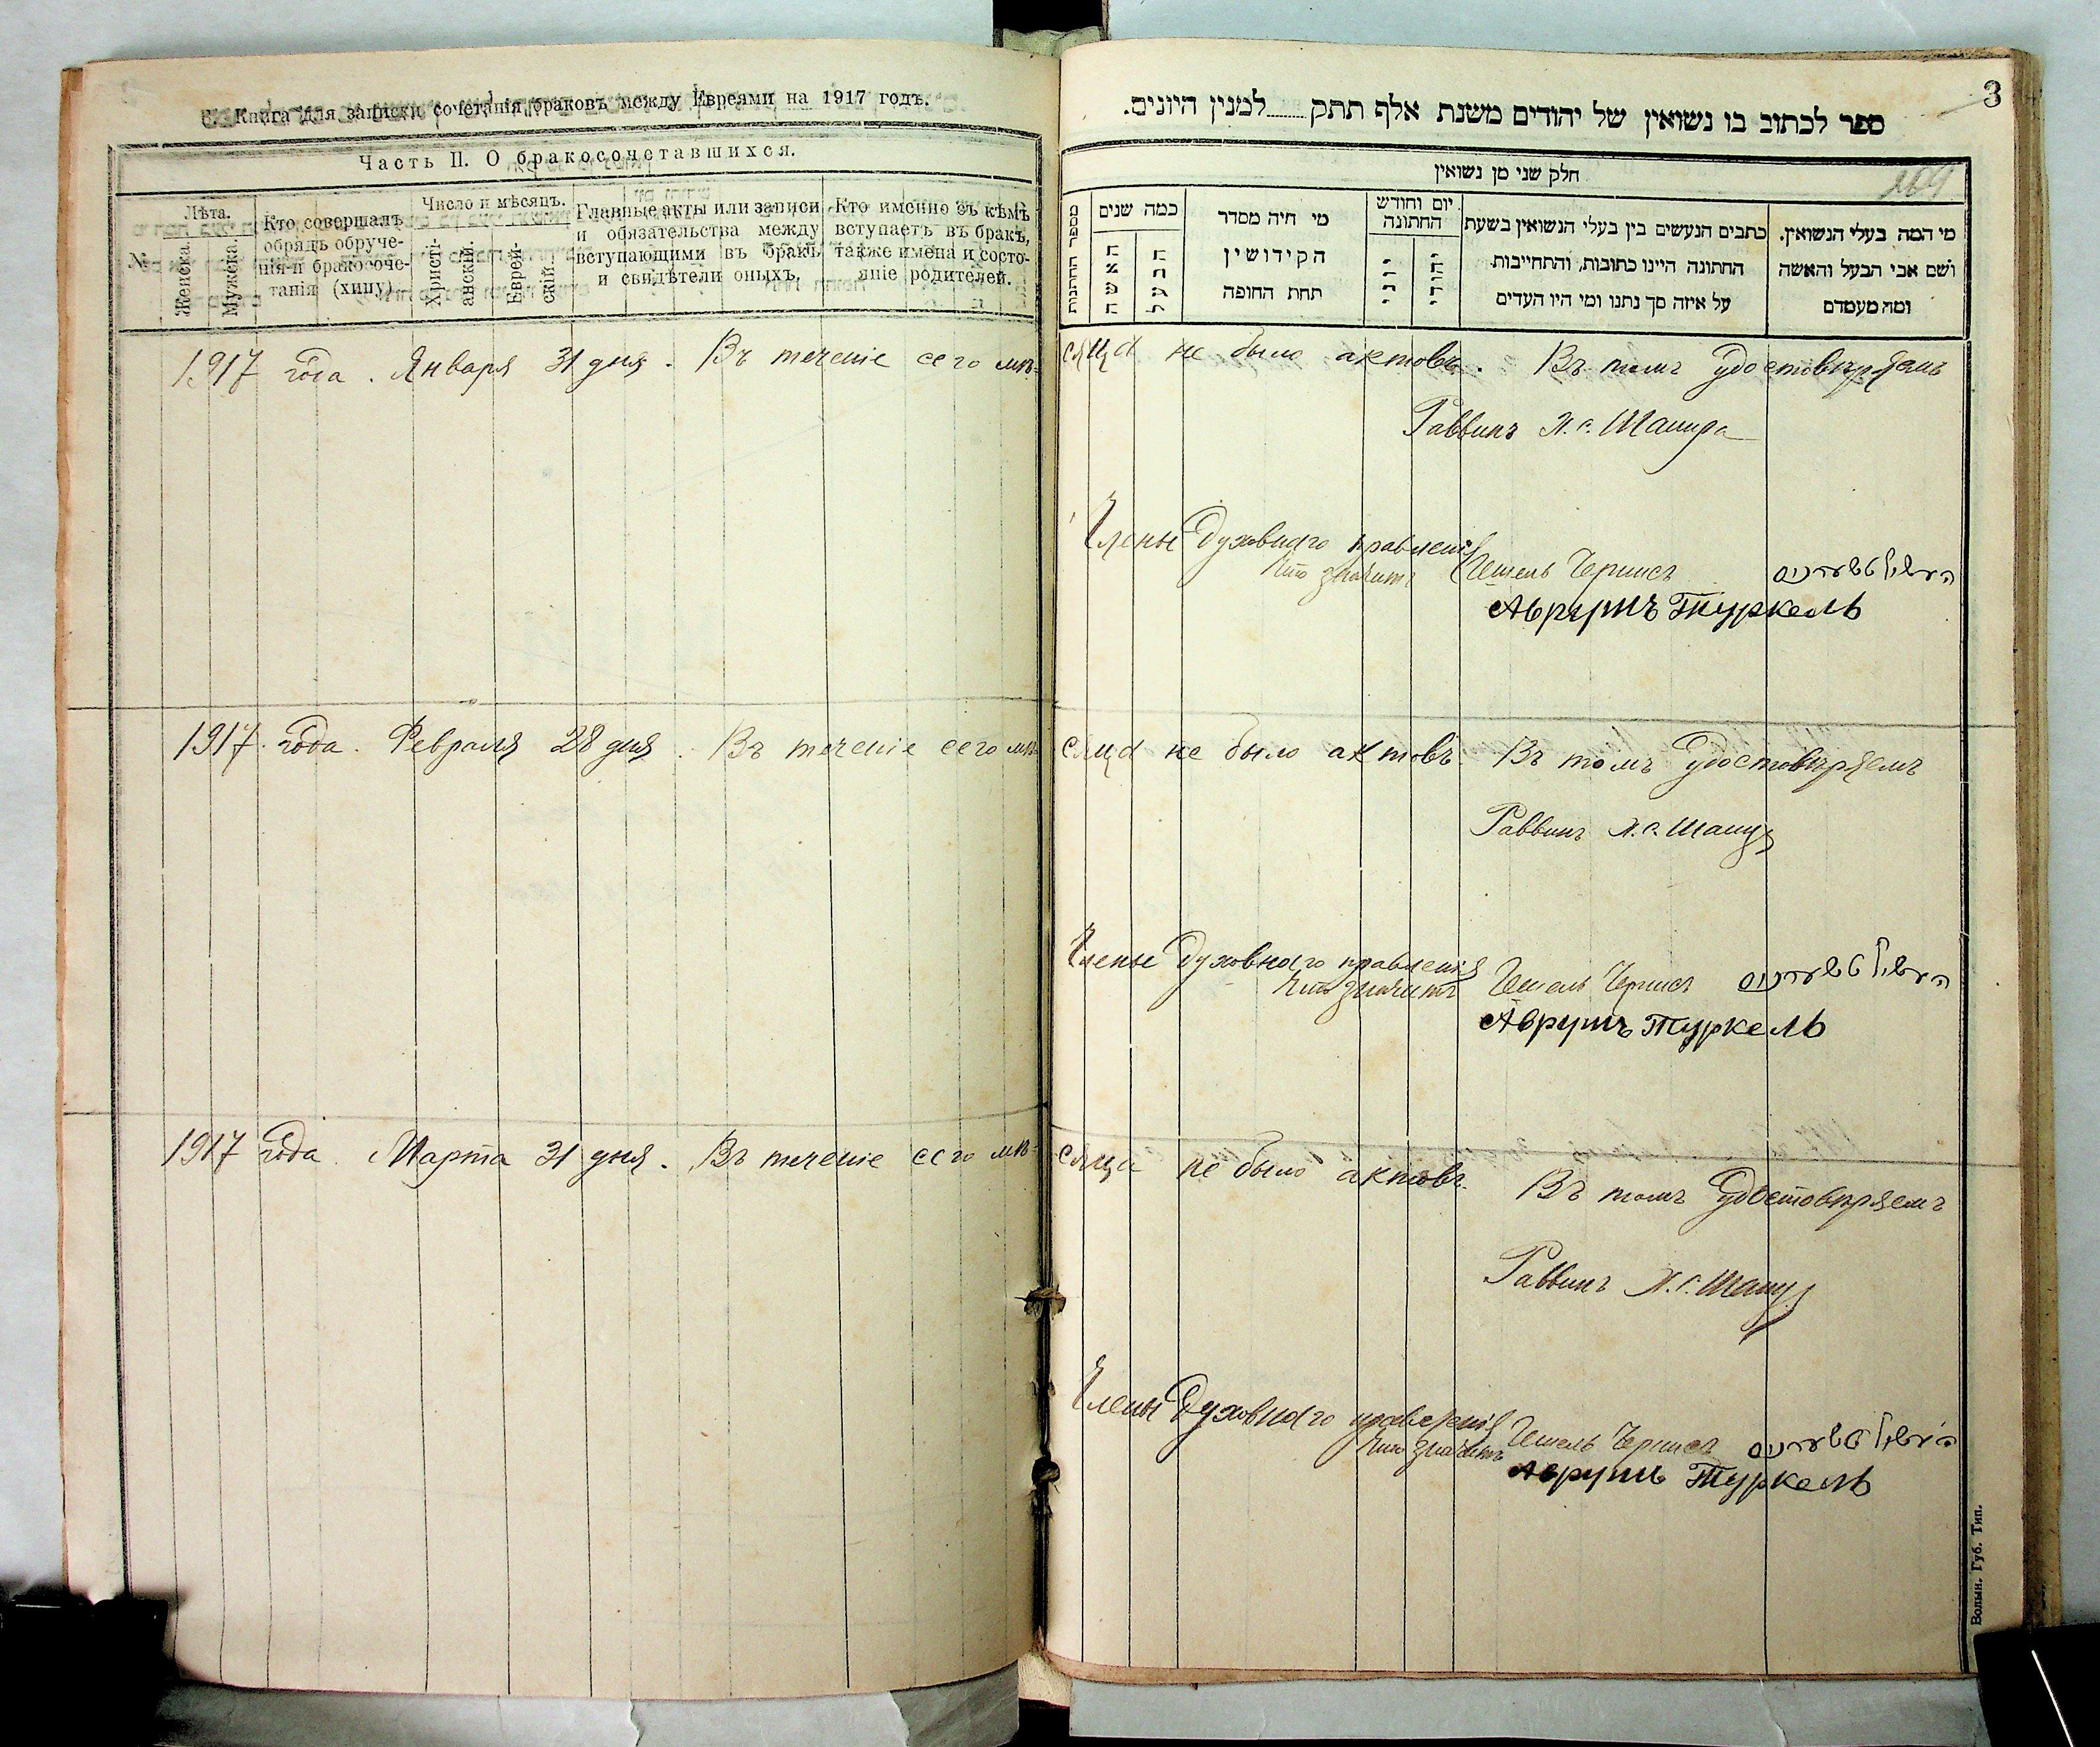 Книга для записки сочетанія браковъ между Евреями на 1917 годъ.
Часть II. О бракосочетавшихся.
№
Лѣта.
Женска.
Мужеска.
Кто совершалъ
обрядъ обруче-
нія и бракосоче-
танія (хипу)
Число и мѣсяцъ.
Христі-
анскій.
Еврей-
скій.
Главные акты или записи
и обязательства между
вступающими въ бракъ
и свидѣтели оныхъ.
Кто именно съ кѣмъ
вступаетъ въ бракъ,
также имена и состо-
яніе родителей.
3
ספר לכתוב בו נשואין של יהודים משנת אלף תתק......למנין היונים.
חלק שני מן נשואין
269
מי המה בעלי הנשואין.
ושם אבי הבעל והאשה
ומה מעמדם
כתבים הנעשים בין בעלי הנשואין בשעת
החתונה היינו כתובות, והתחייבות
על איזה סך נתנו ומי היו העדים
יום וחודש
החתונה
יהודי
יוני
מי היה מסדר
הקידושין
תחת החופה
כמה שנים
הבעל
האשה
מספר החתונות
1917 года. Января 31 дня. Въ теченіе сего мѣ-
сяца не было актовъ. Въ томъ удостовѣряемъ
Раввинъ Х. С. Шапира
Члены Духовнаго правленія
что значитъ Гешель Чернисъ העשיל טשערניס
Аврумъ Туркель
1917 года. Февраля 28 дня. Въ теченіе сего мѣ-
сяца не было актовъ. Въ томъ удостовѣряемъ
Раввинъ Х. С. Шапира
Члены Духовнаго правленія
что значитъ Гешель Чернисъ העשיל טשערניס
Аврумъ Туркель
1917 года. Марта 31 дня. Въ теченіе сего мѣ-
сяца не было актовъ. Въ томъ удостовѣряемъ
Раввинъ Х. С. Шапира
Члены Духовнаго правленія
что значитъ Гешель Чернисъ העשיל טשערניס
Аврумъ Туркель
Волын. Губ. Тип.